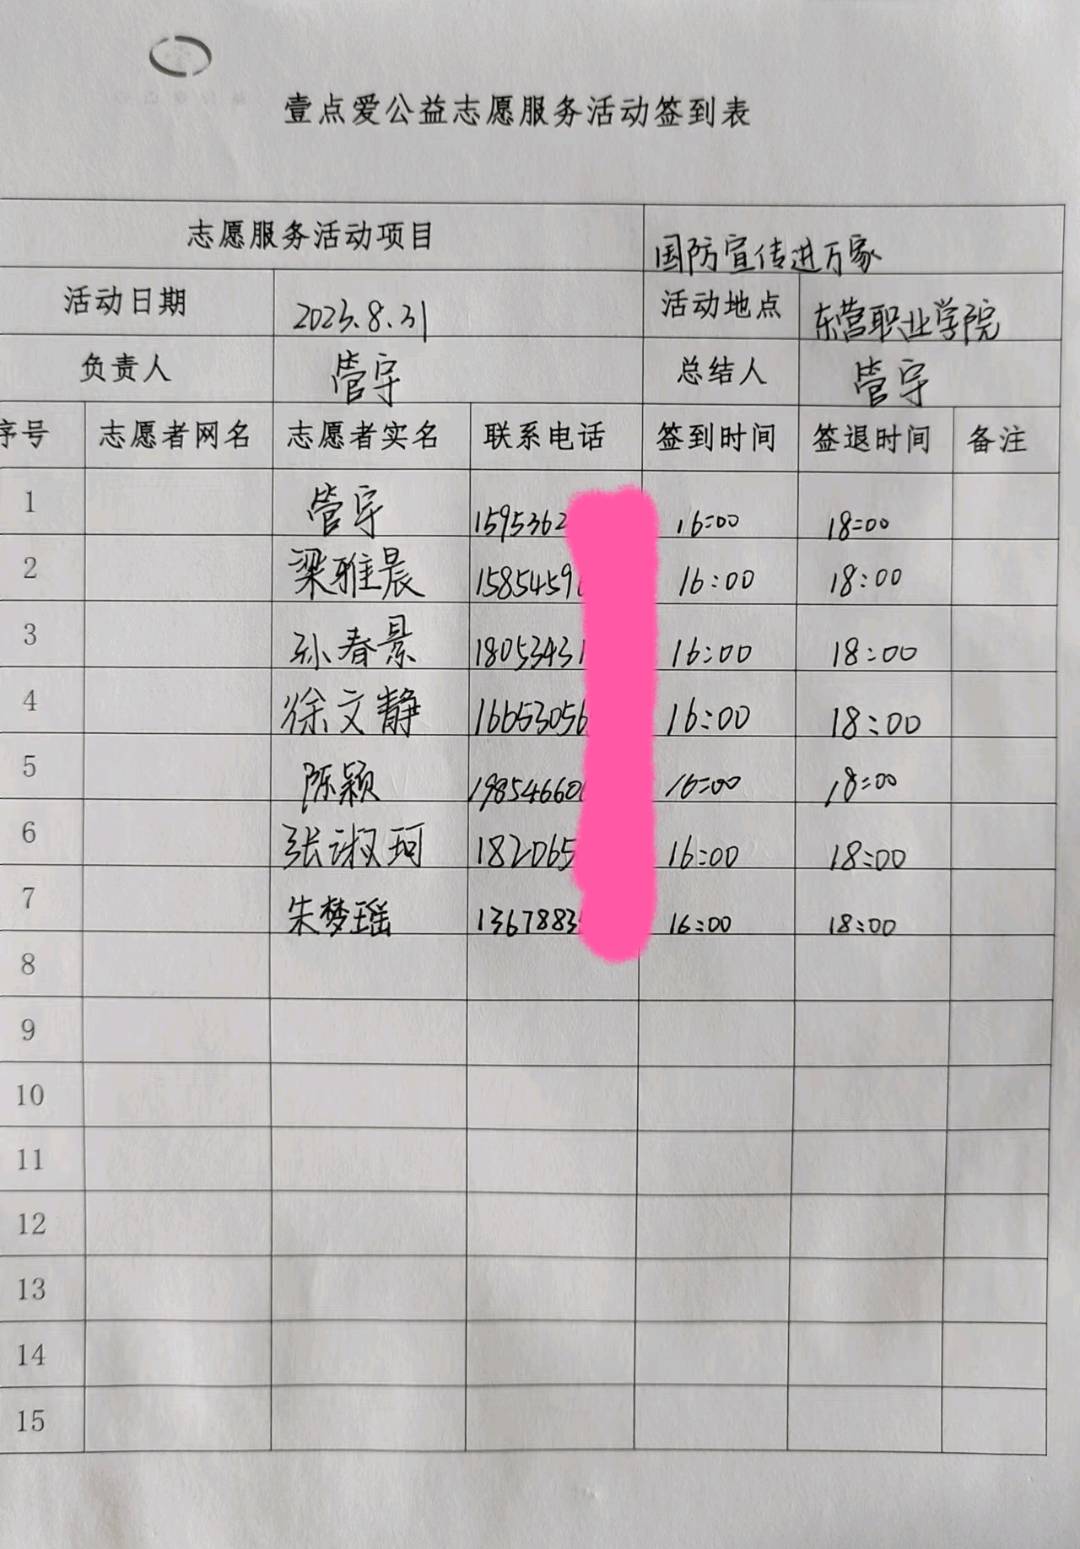 壹点爱公益志愿服务活动签到表
志愿服务活动项目 国防宣传进万家
活动日期 2023.8.31 活动地点 东营职业学院
负责人 管宇 总结人 管宇
序号 志愿者网名 志愿者实名 联系电话 签到时间 签退时间 备注
1 管宇 1595362 16:00 18:00
2 梁雅晨 1585459 16:00 18:00
3 孙春景 1805343 16:00 18:00
4 徐文静 16653056 16:00 18:00
5 陈颖 19854660 16:00 18:00
6 张淑珂 182065 16:00 18:00
7 朱梦瑶 1367883 16:00 18:00
8
9
10
11
12
13
14
15